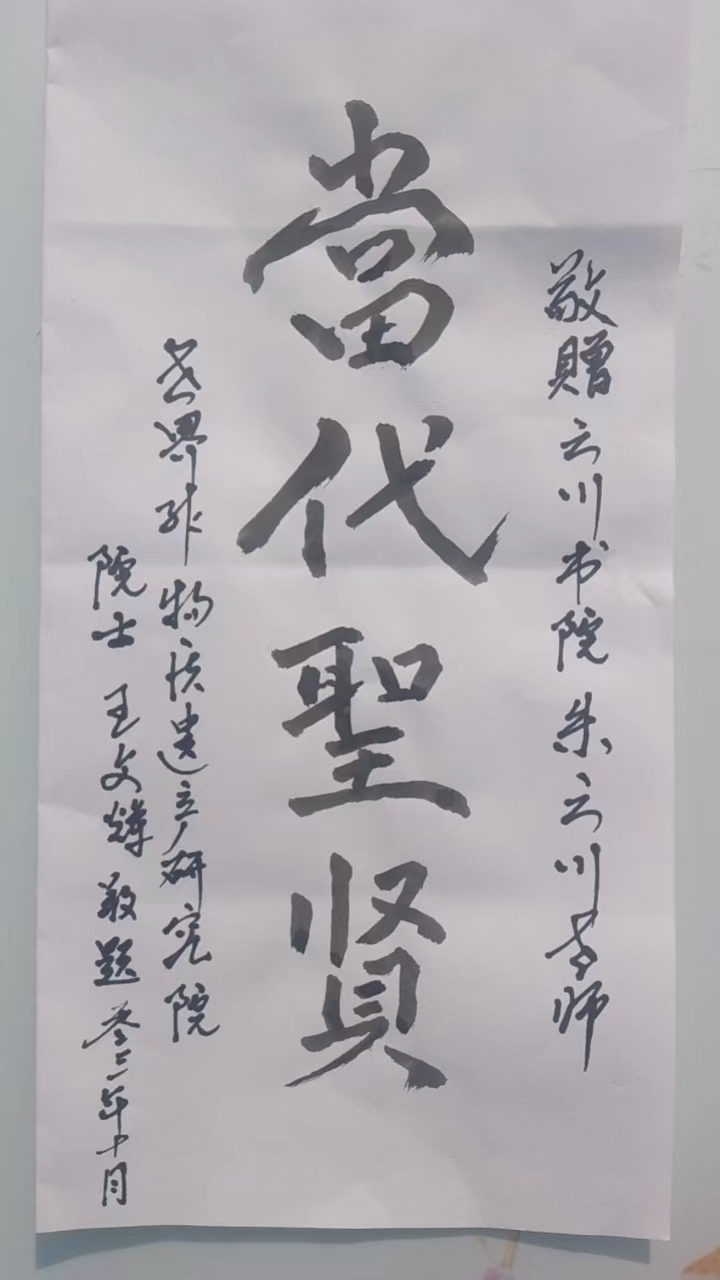 敬贈云川书院朱云川老师
當代聖贤
世界非物质遗产研究院
院士王文辉敬题 二年十月